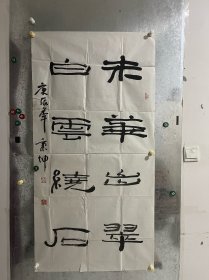 未華出翠
白雲繞石
庚 年 坤